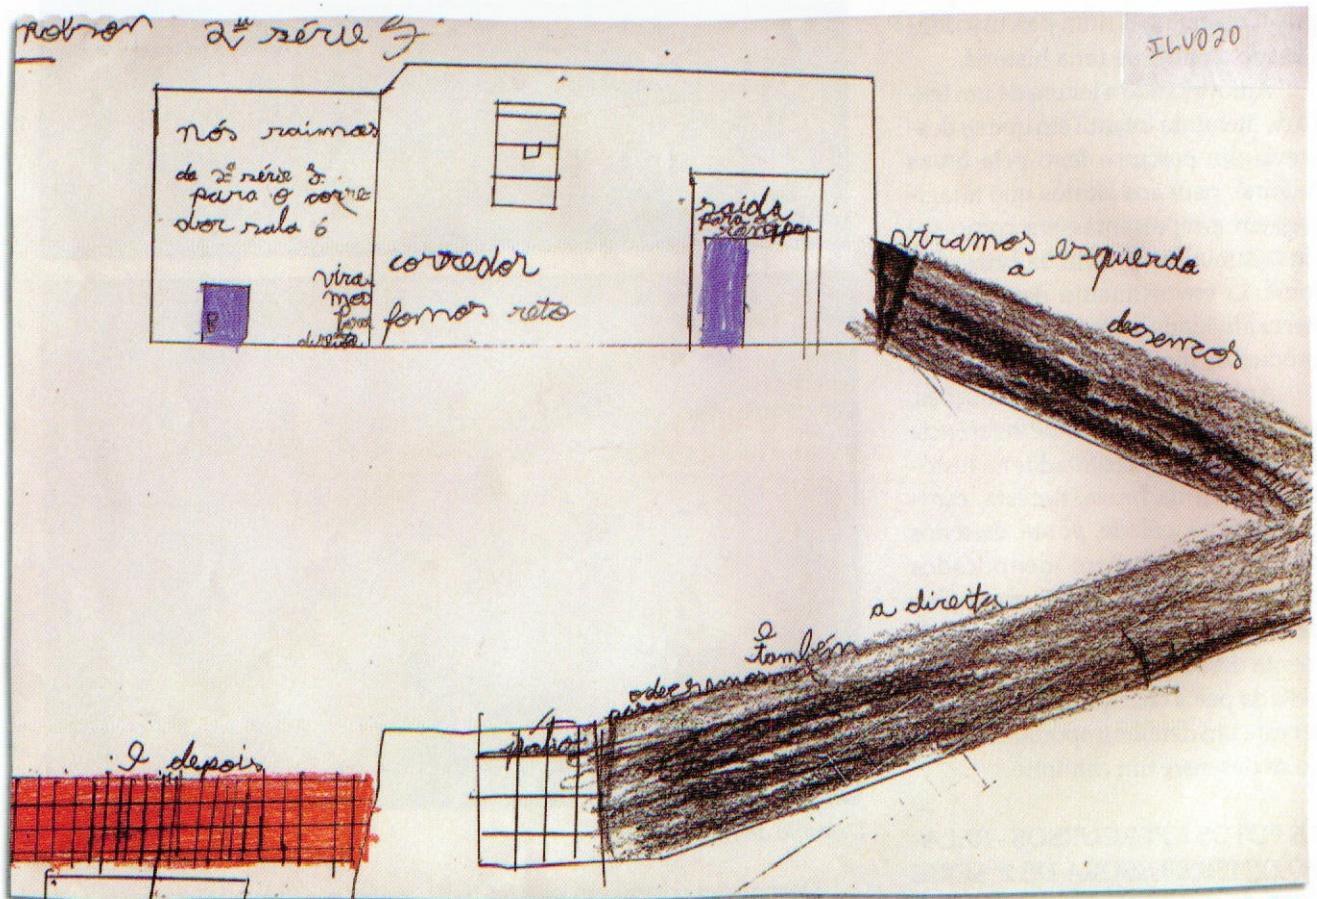 robson 2ª série
ILU020
nós saimos
da 2ª série
para o corre
dor sala 6
vira
mos
para
direita
corredor
fomos reto
saída
para a
rampa
viramos esquerda
a
desemos
a direita
e
também
para
pátio
e depois